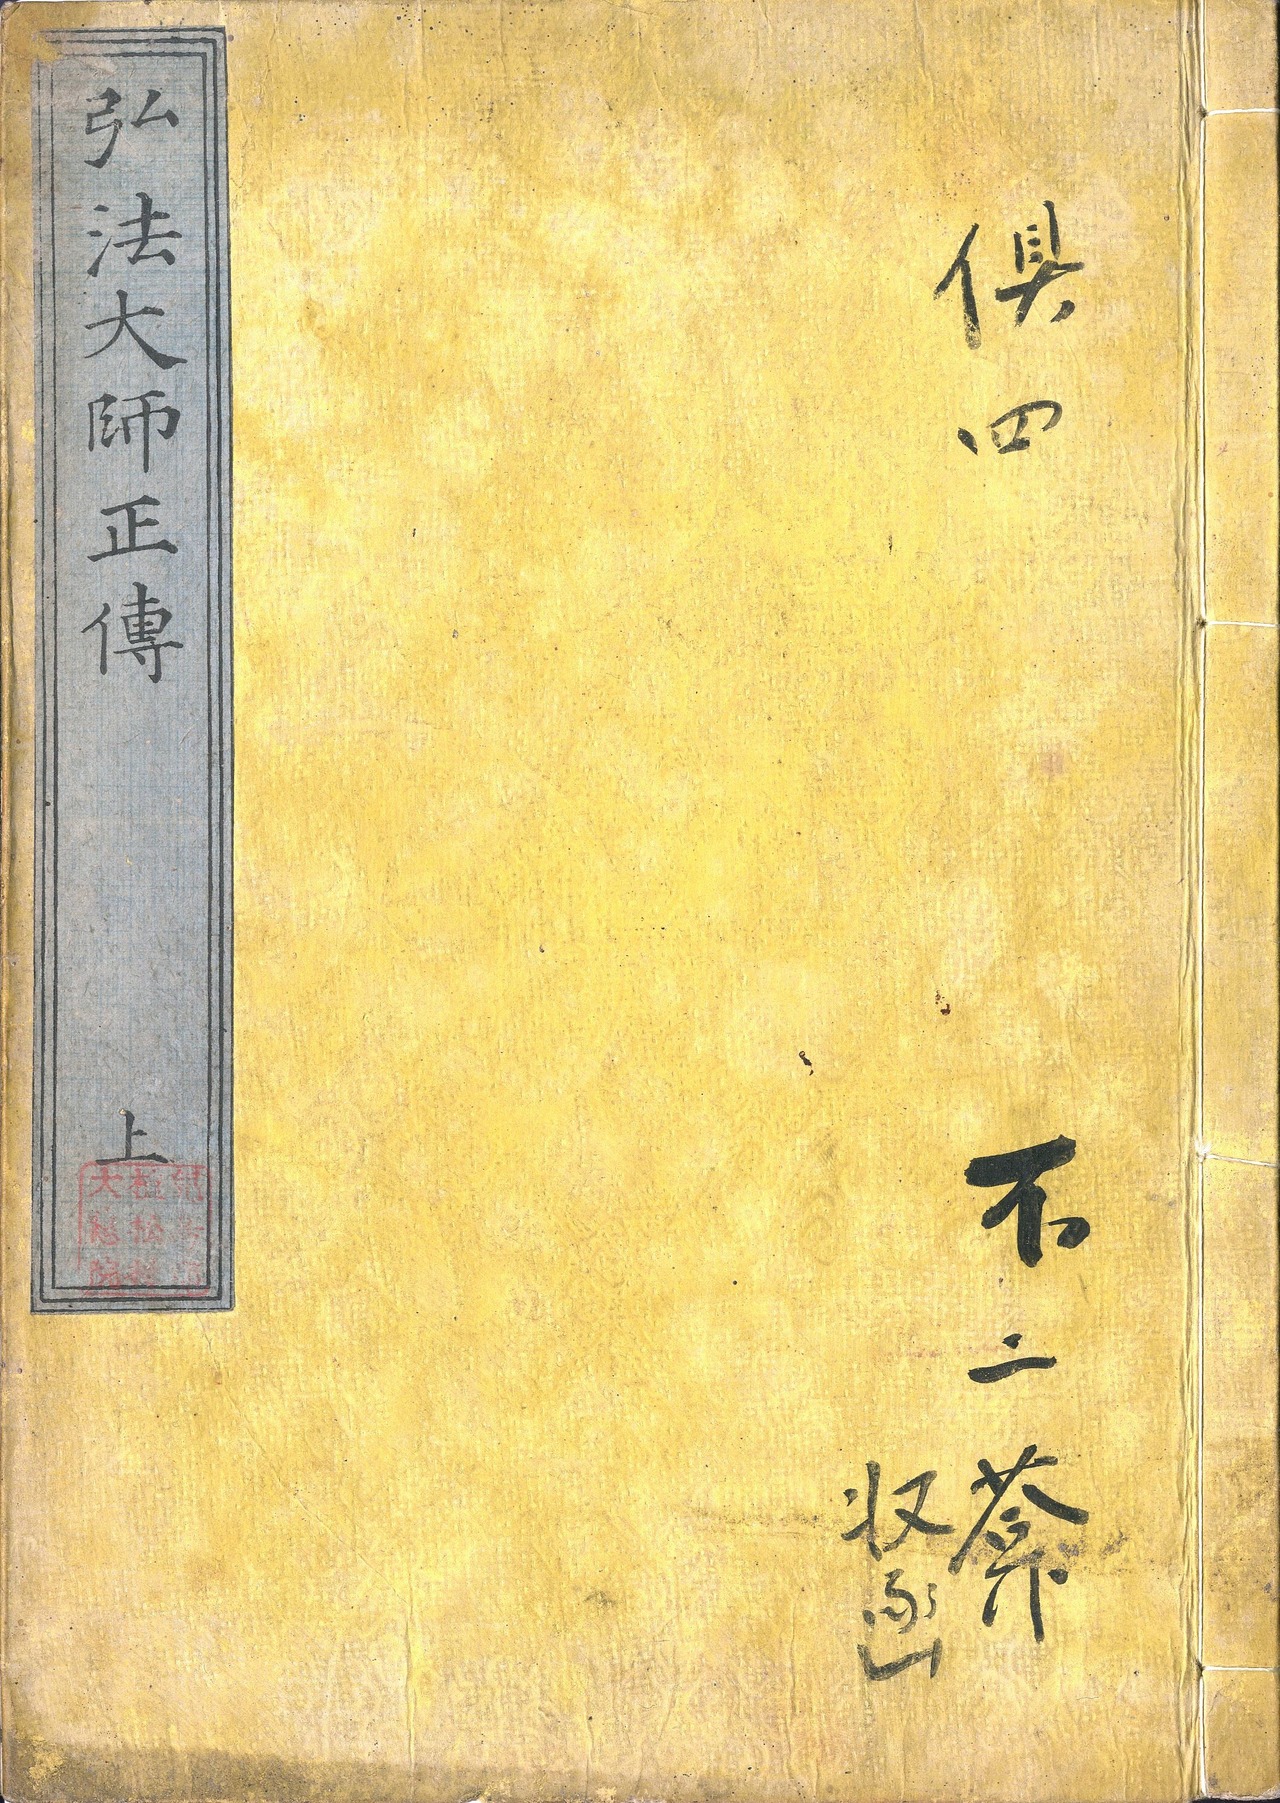 倶四
不二葊
収函
弘法大師正傳
上